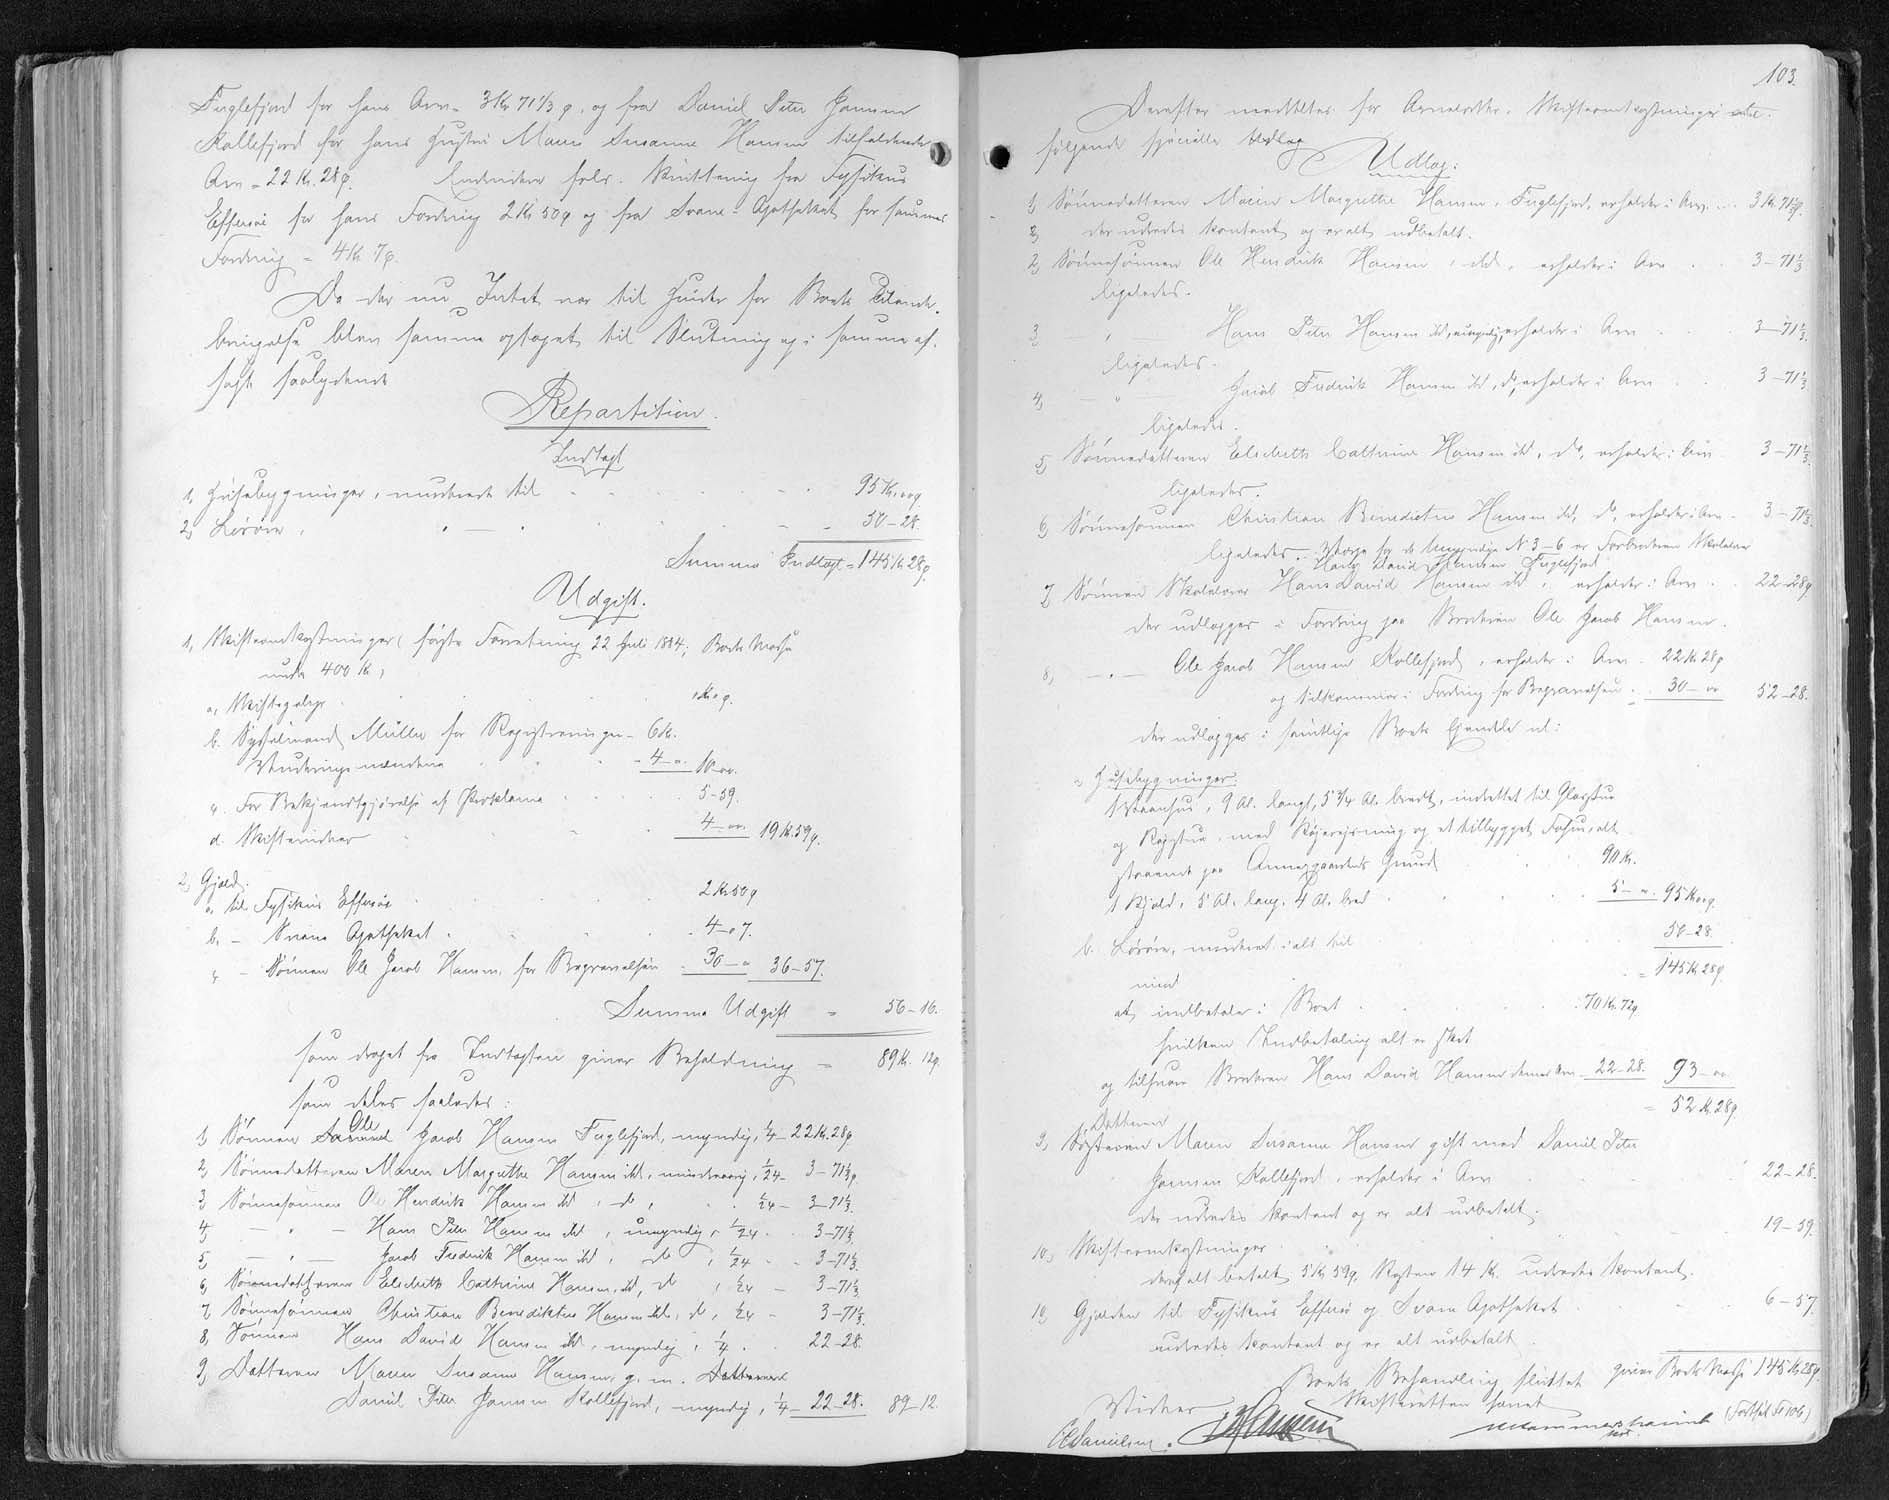 Fuglefjord for hans Arv = 3 Kr 71 1/3 ø. og fra Daniel Peter Jansen
Kollefjord for hans Hustru Maren Susanne Hansen tilfaldende
Arv = 22 Kr. 28 ø. Endvidere fulgte Kvittering fra Fysikus
Effersøe for hans Fordring 2 Kr 50 ø og fra Svane-Apotheket for sammes
Fordring = 4 Kr. 7 ø.
Da der nu Intet var til Hinder for Boets Tilende-
bringelse blev samme optaget til Slutning og i samme af-
sagt saalydende
Repartition.
Indtægt
1, Huusbygninger, vurderede til 95 Kr. 00 ø
2, Løsøre, 50 – 28.
Summa Indtægt = 145 Kr 28 ø.
Udgift.
1, Skifteomkostninger (første Forretning 22 Juli 1884; Boets Masse
under 400 Kr)
a, Skiftegebyr " Kr " ø.
b. Sysselmand Müller for Registreringen – 6 Kr.
Vurderingsmændene – 4 – " 10 – 00.
c. For Bekjendtgjørelse af Proklama 5 – 59.
d. Skiftevidner 4 – 00. 19 Kr 59 ø.
2, Gjæld:
a, til Fysikus Effersøe 2 Kr 50 ø
b. – Svane Apotheket 4 – 07.
c – Sønnen Ole Jacob Hansen, for Begravelsen 30 – " 36 – 57.
Summa Udgift = 56 – 16.
som draget fra Indtægten giver Beholdning = 89 Kr. 12 ø.
som deles saaledes:
1, Sønnen Ole Jacob Hansen Fuglefjord, myndig, 1/4 – 22 Kr. 28 ø
2, Sønnedatteren Maren Margrethe Hansen ibd, mindreaarig, 1/24 – 3 – 71 1/3 ø.
3, Sønnesønnen Ole Hendrik Hansen ibd, do, 1/24 – 3 – 71 1/3.
4, – " – Hans Peter Hansen ibd, umyndig, 1/24 – 3 – 71 1/3.
5, – " – Jacob Fredrik Hansen ibd, do, 1/24 – 3 – 71 1/3.
6, Sønnedatteren Elsebeth Cathrine Hansen, ibd, do, 1/24 – 3 – 71 1/3.
7, Sønnesønnen Christian Benediktus Hansen ibd, do, 1/24 – 3 – 71 1/3.
8, Sønnen Hans David Hansen ibd, myndig, 1/4. 22 – 28.
9, Datteren Maren Susanne Hansen, g. m.
Daniel Peter Jansen Kollefjord, myndig, 1/4 – 22 – 28. 89 – 12.
103.
Derefter meddeltes for Arvelodder, Skifteomkostninger
følgende specielle Udlæg
Udlæg:
1, Sønnedatteren Maren Margrethe Hansen, Fuglefjord, erholder i Arv 3 Kr. 71 1/3 ø.
der udredes kontant og er alt udbetalt.
2, Sønnesønnen Ole Hendrik Hansen, ibd, erholder i Arv 3 – 71 1/3
ligeledes.
3, – " – Hans Peter Hansen ibd, umyndig, erholder i Arv 3 – 71 1/3.
ligeledes.
4, – " – Jacob Fredrik Hansen ibd, do, erholder i Arv 3 – 71 1/3
ligeledes.
5, Sønnedatteren Elsebeth Cathrine Hansen ibd, do, erholder i Arv 3 – 71 1/3.
ligeledes.
6, Sønnesønnen Christian Benedictus Hansen ibd, do, erholder i Arv – 3 – 71 1/3.
ligeledes. – Værge for de Umyndige No 3 – 6 er Farbroderen Skolelærer
Hans David Hansen Fuglefjord
7, Sønnen Skolelærer Hans David Hansen ibd, erholder i Arv 22 – 28 ø
der udlægges i Fordring paa Broderen Ole Jacob Hansen.
8, – " – Ole Jacob Hansen Kollefjord, erholder i Arv 22 Kr 28 ø
og tilkommer i Fordring for Begravelsen 30 – 00 52 – 28.
der udlægges i samtlige Boets Ejendele nl:
a Huusbygninger:
1 Vaanhus, 9 Al. langt, 5 3/4 Al. bredt, indrettet til Glasstue
og Røgstue, med og et tilbygget, alt
staaende paa Annexgaardens Grund 90 Kr.
1 Hjald, 5 Al. lang, 4 Al. bred 5 – " 95 Kr 00 ø.
b. Løsøre, vurderet ialt til 50 – 28.
= 145 Kr 28 ø.
mod
at indbetale i Boet 70 Kr. 72 ø
hvilken Indbetaling alt er sket
og tilsvare Broderen Hans David Hansen dennes Arv 22 – 28. 93 – 00
= 52 Kr. 28 ø
9, Datteren Maren Susanne Hansen gift med Daniel Peter
Jansen Kollefjord, erholder i Arv 22 – 28.
der udredes kontant og er alt udbetalt.
10, Skifteomkostninger 19 – 59.
deraf alt betalt 5 Kr 59 ø, Resten 14 Kr. udredes kontant.
10, Gjælden til Fysikus Effersøe og Svane Apotheket 6 – 57.
udredes kontant og er alt udbetalt.
giver Boets Masse 145 Kr 28 ø.
Boets Behandling sluttet
Skifteretten hævet
Vidner
(Forts. Fol 106)